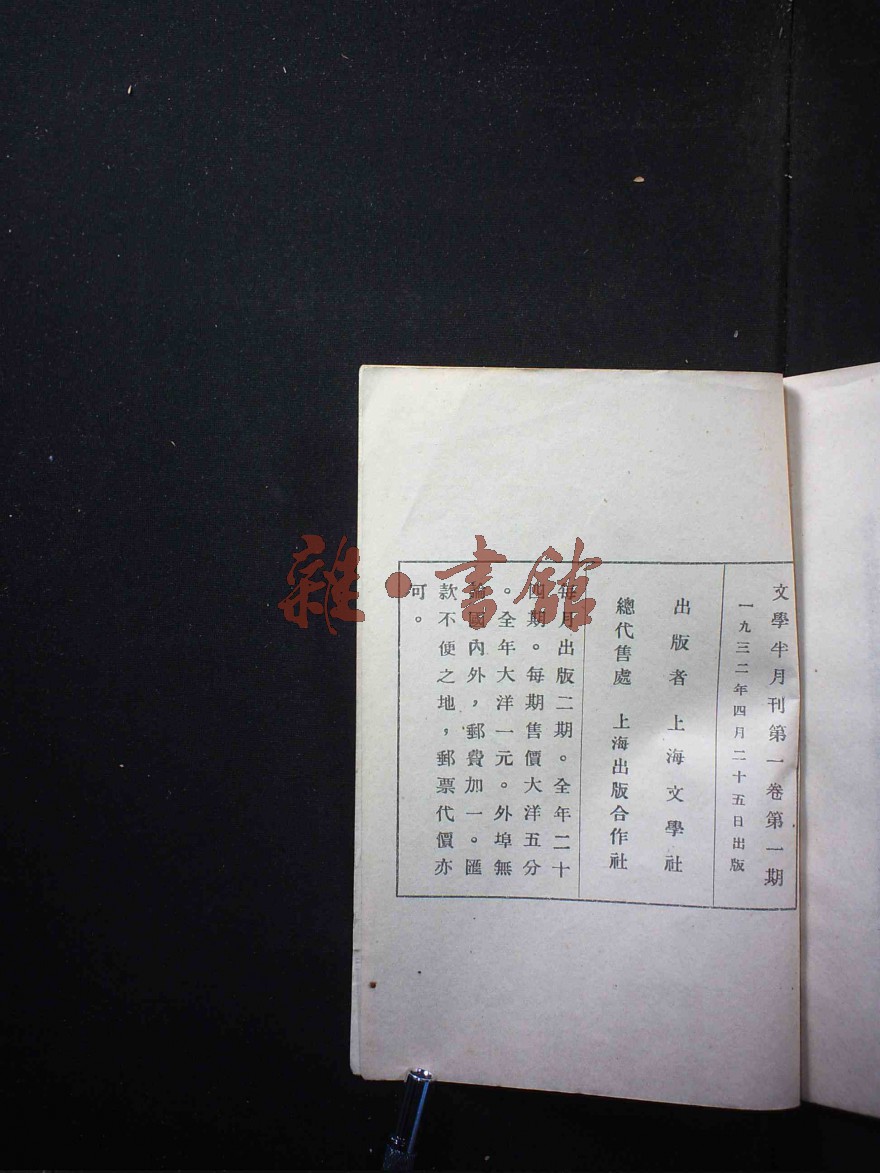 文學半月刊第一卷第一期
一九三二年四月二十五日出版
出版者　上海文學社
總代售處　上海出版合作社
每月出版二期。全年二十
四期。每期售價大洋五分
。全年大洋一元。外埠無
論國內外，郵費加一。匯
款不便之地，郵票代價亦
可。
雜·書館